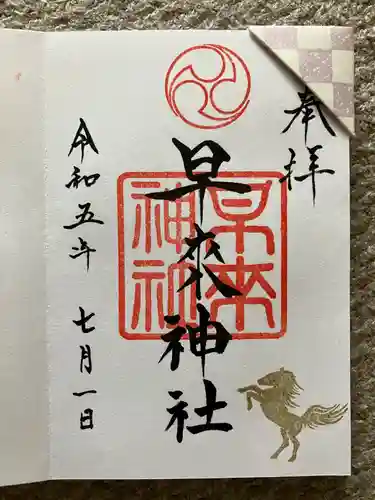 奉拝
早來神社
早来神社
令和五年
七月一日